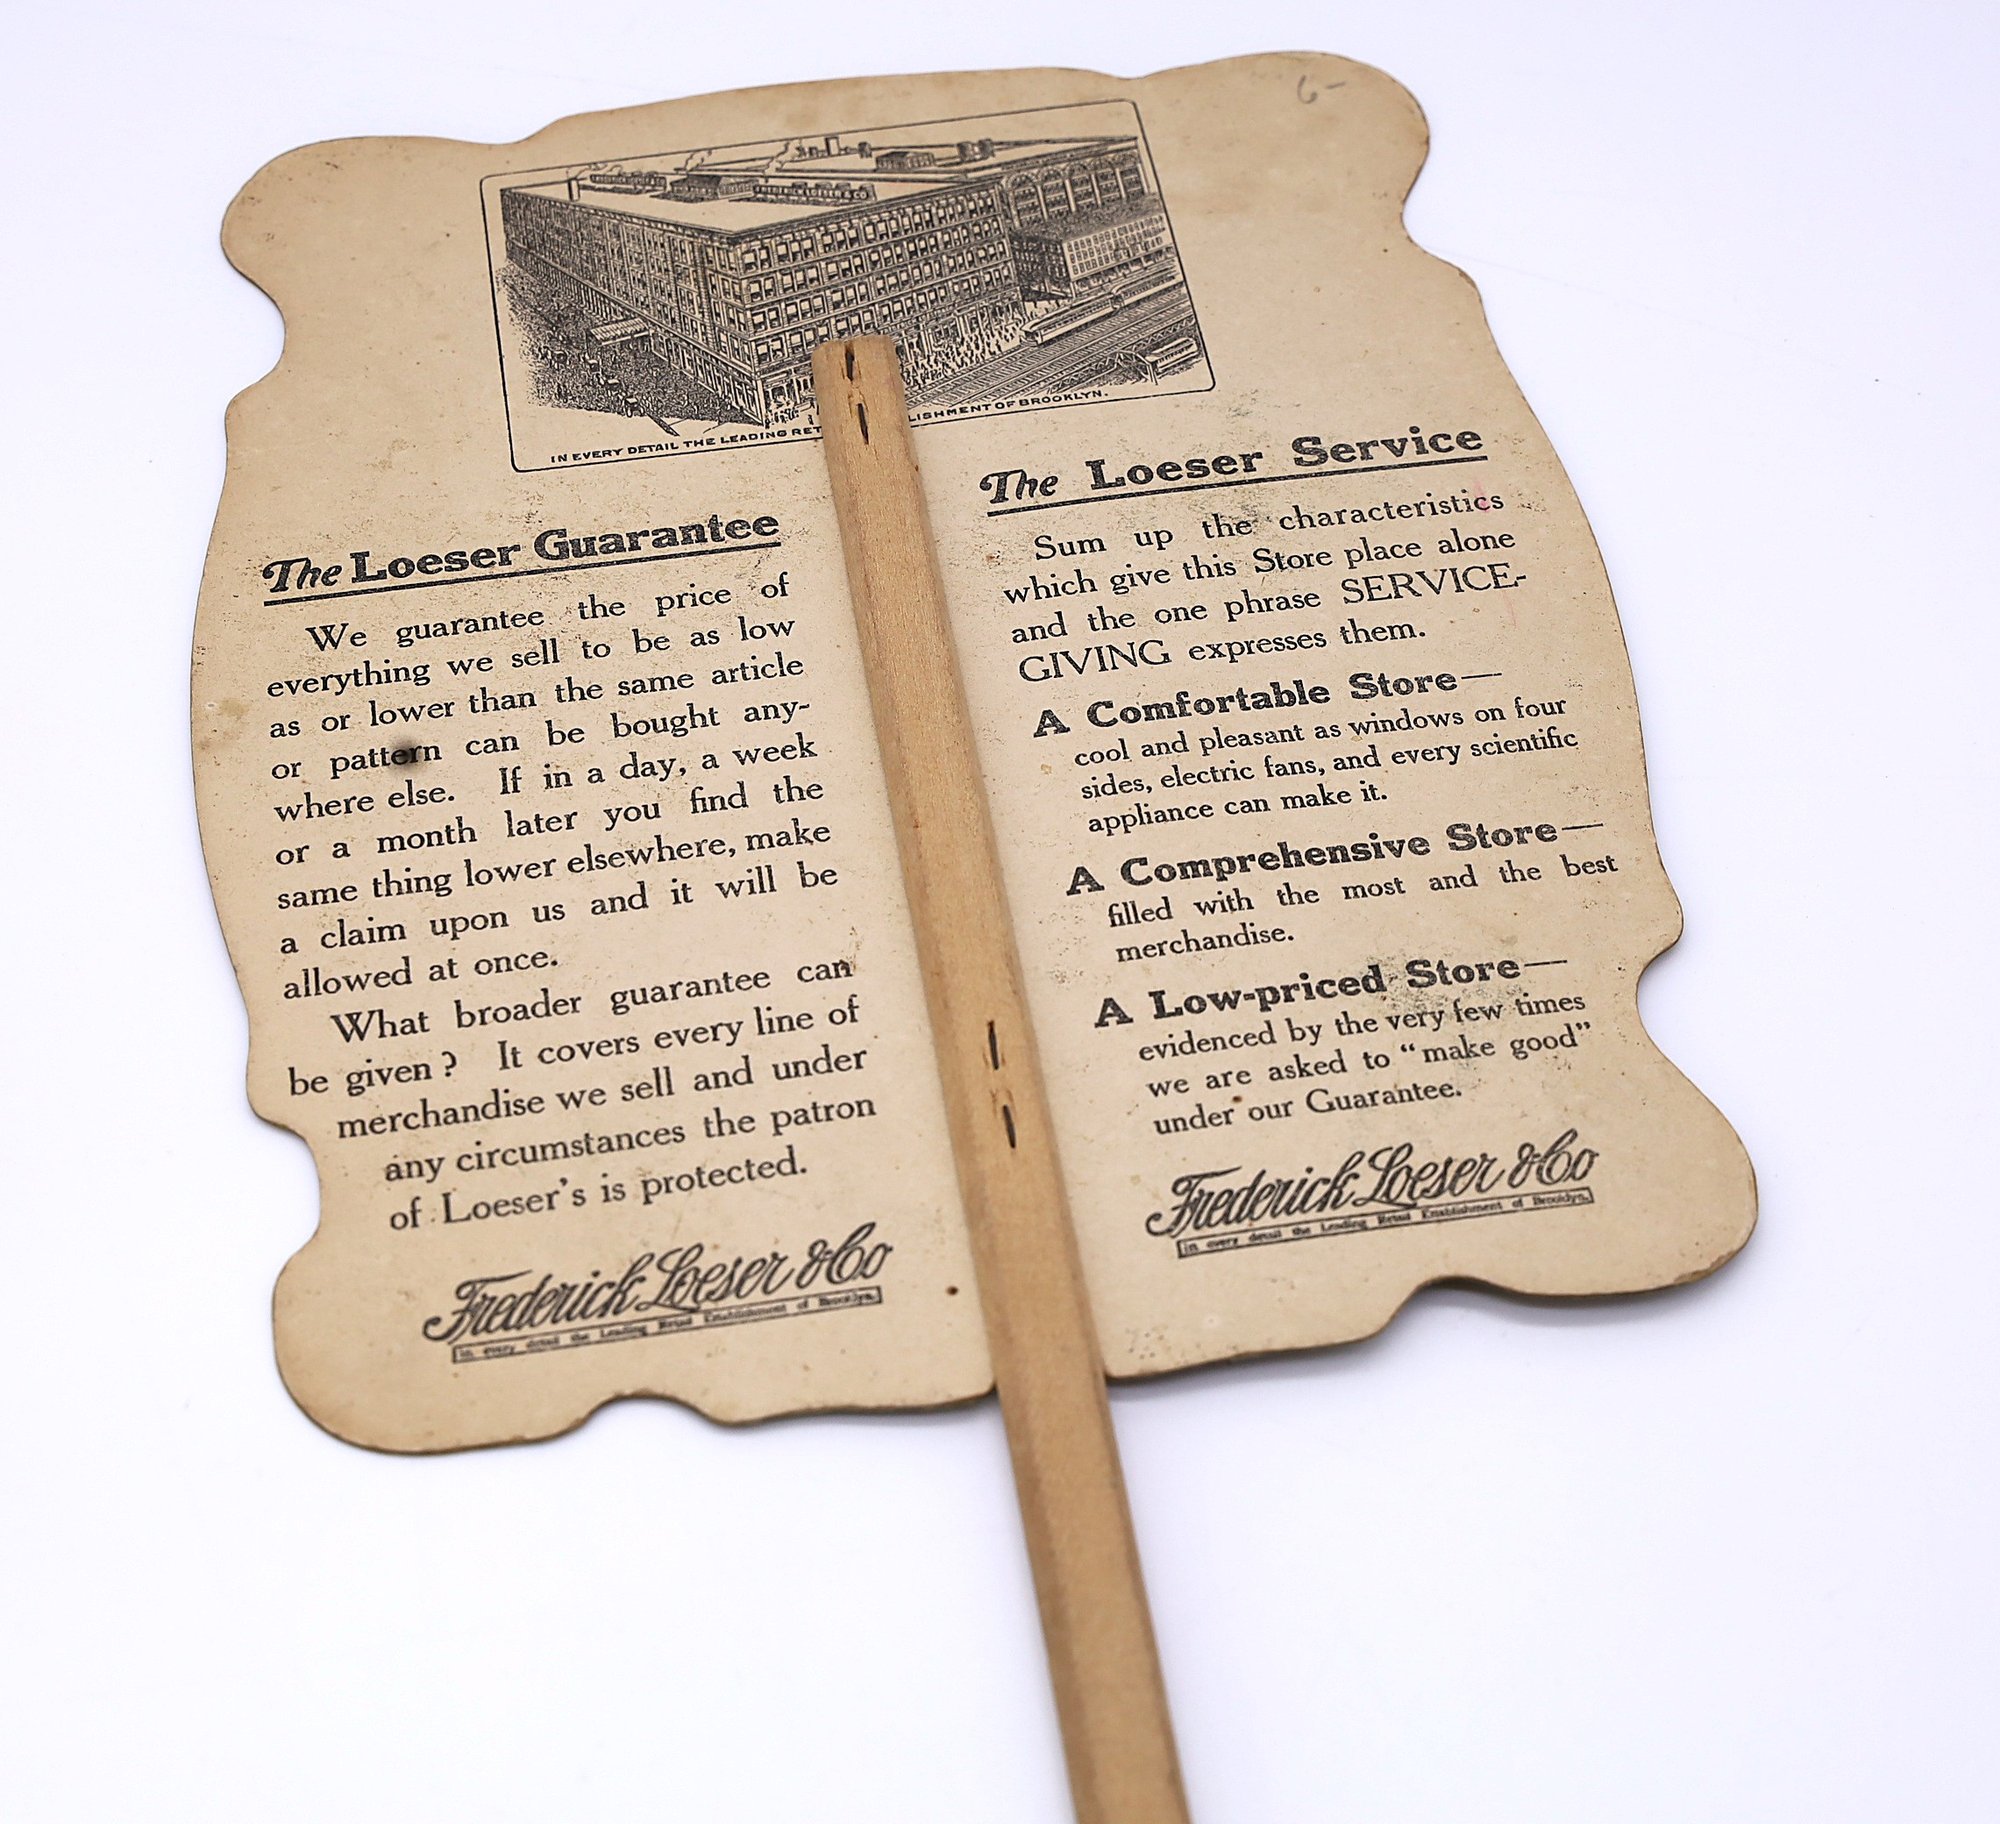 6-
FREDERICK LOESER & CO
IN EVERY DETAIL THE LEADING RET LISHMENT OF BROOKLYN.
The Loeser Guarantee
We guarantee the price of
everything we sell to be as low
as or lower than the same article
or pattern can be bought any-
where else. If in a day, a week
or a month later you find the
same thing lower elsewhere, make
a claim upon us and it will be
allowed at once.
What broader guarantee can
be given? It covers every line of
merchandise we sell and under
any circumstances the patron
of Loeser's is protected.
Frederick Loeser & Co
In every detail the Leading Retail Establishment of Brooklyn.
The Loeser Service
Sum up the characteristics
which give this Store place alone
and the one phrase SERVICE-
GIVING expresses them.
A Comfortable Store—
cool and pleasant as windows on four
sides, electric fans, and every scientific
appliance can make it.
A Comprehensive Store—
filled with the most and the best
merchandise.
A Low-priced Store—
evidenced by the very few times
we are asked to “make good”
under our Guarantee.
Frederick Loeser & Co
In every detail the Leading Retail Establishment of Brooklyn.